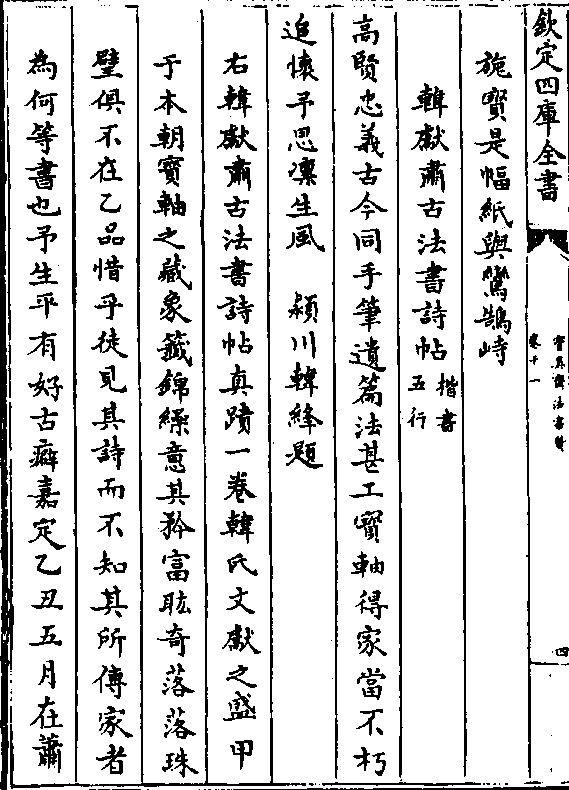 欽定四庫全書
寶真齋法書贊
卷十一
四
旎寳是幅紙與鸞鵠峙
韓獻肅古法書詩帖
楷書
五行
高賢忠義古今同手筆遺篇法甚工寳軸得家當不朽
追懷予思凛生風　潁川韓絳題
右韓獻肅古法書詩帖真蹟一卷韓氏文獻之盛甲
于本朝寳軸之藏象籤錦縹意其矜富眩奇落落珠
璧俱不在乙品惜乎徒見其詩而不知其所傳家者
為何等書也予生平有好古癖嘉定乙丑五月在蕭